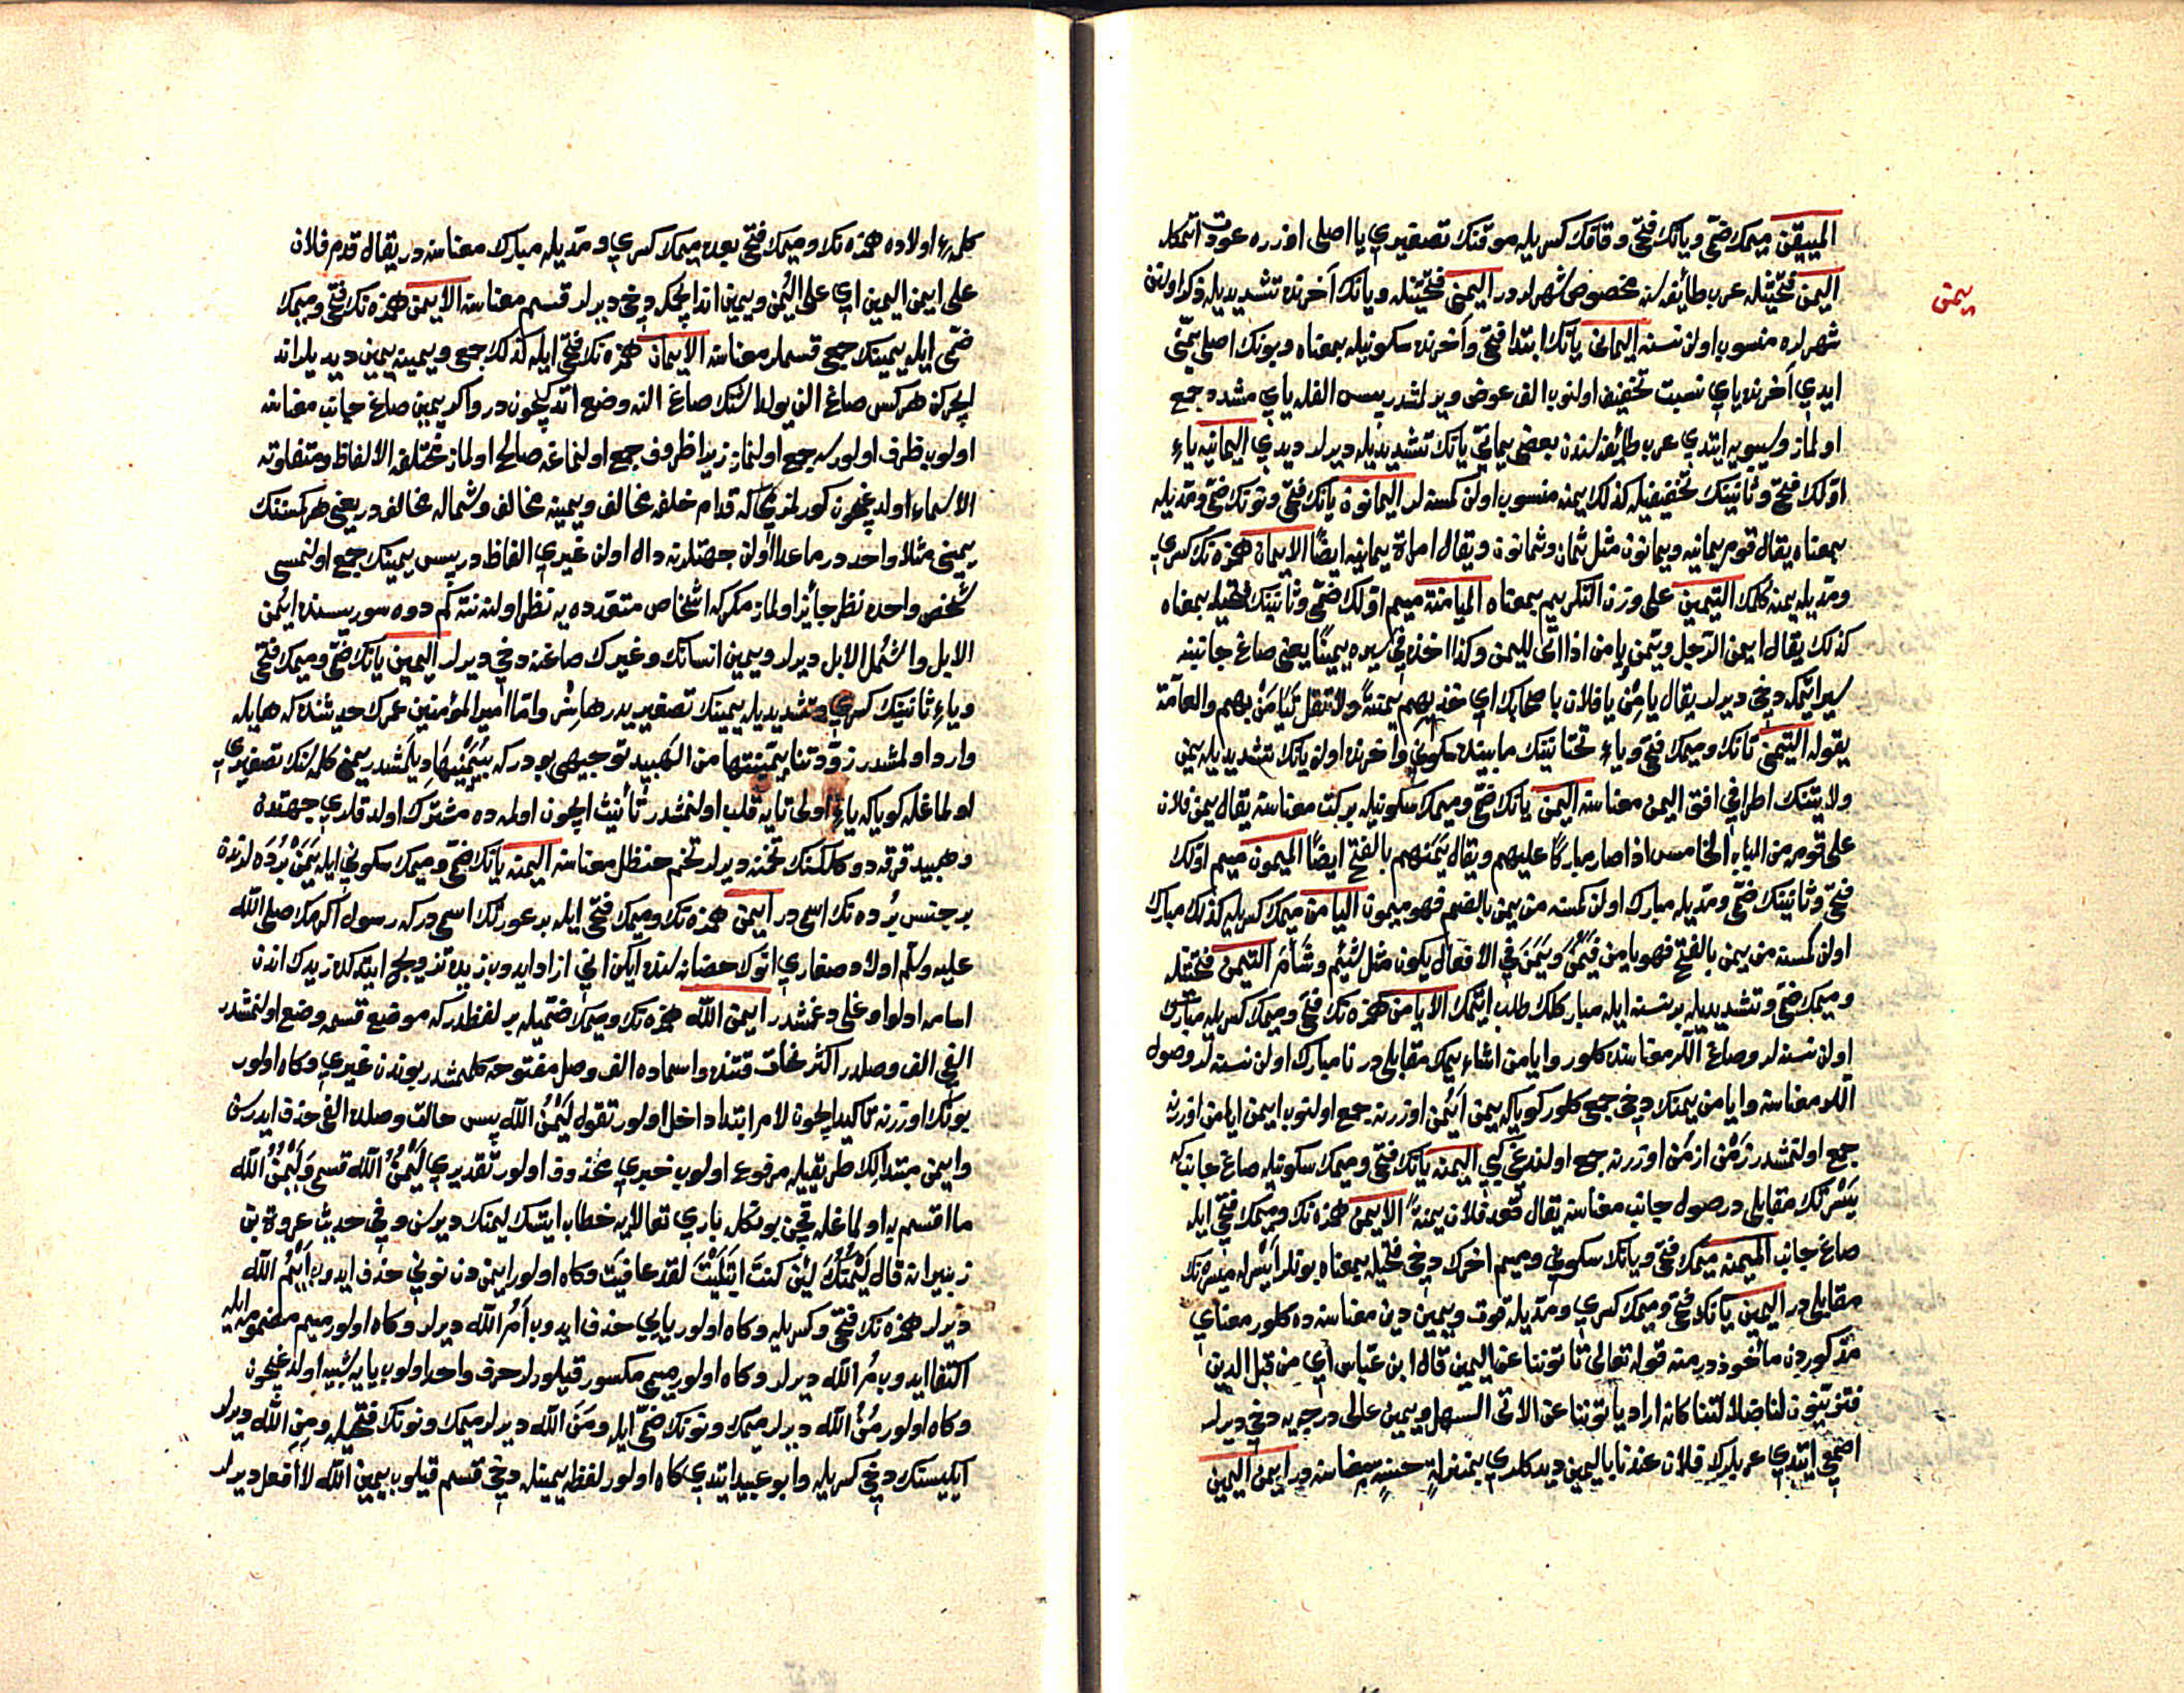 المييقن ميمك ضمى ويانك فتحى وقافك كسريله موقنك تصغيريدر يا اصلى اوزره عودت اتمكله
يمن
اليمن فتحتينله عرب طائفه سنه مخصوص شهرلردر اليمنى فتحتينله ويانك آخرنده تشديديله ذكر اولنن
شهرلره منسوب اولن نسنه اليمانى يانك ابتدا فتحى وآخرنده سكونيله بمعناه وبونك اصلى يمنى
ايدى آخرنده ياى نسبت تخفيف اولنوب الف عوض ويرلمشدر پس الفله ياى مشدد جمع
اولماز وسيبويه ايتدى عرب طائفه سندن بعضى يمانىّ يانك تشديديله ديرلر ديدى اليمانيه ياء
اوّلك فتحى وثانينك تخفيفيله كذلك يمنه منسوب اولن كمسنه لر اليمانون يانك فتحى ونونك ضمى ومديله
بمعناه يقال قوم يمانيه ويمانون مثل ثمان وثمانون ويقال امراة يمانيه ايضًا الايمان همزه نك كسرى
ومديله يمنه كلمك التيمين على وزن التكريم بمعناه الميامنة ميم اوّلك ضمى وثانينك فتحيله بمعناه
كذلك يقال ايمن الرجل ويمّن ويامن اذا اتى لليمن وكذا اخذ فى سيره يمينًا يعنى صاغ جانبنه
سير ايتمكه دخى ديرلر يقال يامِنْ يا فلان باصحابك اى خذ بهم يَمنةً ولا تقل تَيَامَنْ بهم والعامّة
يقوله التيمنى تانك وميمك فتحى وياء تحتانينك مابينده سكونى وآخرنده اولن يانك تشديديله يمن
ولايتنك اطرافى افق اليمن معناسنه اليمن يانك ضمى وميمك سكونيله بركت معناسنه يقال يمن فلان
على قومه من الباب الخامس اذا صار مباركًا عليهم ويقال يَمَنهم بالفتح ايضًا الميمون ميم اوّلك
فتحى وثانينك ضمى ومديله مبارك اولن كمسنه من يمن بالضم فهو ميمون اليامن ميمك كسريله كذلك مبارك
اولن كمسنه من يمن بالفتح فهو يامن فيَمُنَ ويَمَنَ فى الافعال يكون مثل شَئِم وشَأَم التيمن فتحتينله
وميمك ضمى وتشديديله بر نسنه ايله مباركلك طلب ايتمك الايامن همزه نك فتحى وميمك كسريله مبارك
اولن نسنه لر وصاغ اللر معناسنده كلور وايامن اشاءيمك مقابلى در نامبارك اولن نسنه لر وصول
اللر معناسنه وايامن يمنك دخى جمعى كلور كويا كه يمن ايْمُن اوزرنه جمع اولنوب ايمن ايامن اوزرنه
جمع اولنمشدر زَمَن ازمُن اوزرنه جمع اولندغى كبى اليمنه يانك فتحى وميمك سكونيله صاغ جانب كه
يَسْرتك مقابلى در صول جانب معناسنه يقال قعد فلان يمنةً الايمن همزه نك وميمك فتحى ايله
صاغ جانب الميمنه ميمك فتحى ويانك سكونى وميم اخرك دخى فتحيله بمعناه بونلر ايْسرله ميسره نك
مقابلى در اليمين يانك فتحى وميمك كسرى ومديله قوت ويمين دين معناسنه ده كلور معناى
مذكوردن مأخوذ در منه قوله تعالى تأتوننا عن اليمين قال ابن عباس اى من قبل الدين
فتزيّنون لنا ضلالتنا كانه اراد يأتوننا عن الاتى السهل ويمين عالى درجه يه دخى ديرلر
اصمعى ايتدى عربلرك فلان عندنا باليمين ديدكلرى بمنزلةٍ حسنةٍ معناسنه در ايمن اليمين
كلمه لرء اولاده همزه نك وميمك فتحى بعده ميمك كسرى ومديله مبارك معناسنه در يقال قدم فلان
على ايمن اليمين اى على اليُمن ويمين اند ايچمكه دخى ديرلر قسم معناسنه الايمن همزه نك فتحى وميمك
ضمى ايله يمينك جمعى قسملر معناسنه الايمان همزه نك فتحى ايله كذلك جمعى ويمينه يمين ديديلر اند
ايچركن هر كس صاغ الن يولداشنك صاغ النه وضع اتدكيچون در واكر يمين صاغ جانب معناسنه
اولوب ظرف اولورسه جمع اولنماز زيرا ظروف جمع اولنماغه صالح اولماز مختلفة الالفاظ ومتفاوته
الاسماء اولدغيچون كورلمزمى كه قدام خلفه مخالف ويمينه مخالف وشماله مخالف در يعنى هر كسنك
يمينى مثلا واحد در ماعدا اولن جهتلرنه دال اولن غيرى الفاظ در پس يمينك جمع اولنمسى
شخص واحده نظر جائز اولماز مكر كه اشخاص متعدده يه نظر اولنه نته كم دوه سوريسنده ايْمُن
الابل واشمُل الابل ديرلر ويمين انسانك وغيرك صاغنه دخى ديرلر اليمين يانك ضمى وميمك فتحى
وياء ثانينك كسرى وتشديديله يمينك تصغيريدر هامش واما امير المؤمنين عمرك حديثنده كه هايله
وارد اولمشدر زوّدتنا يمّينتها من الهبيد توجيهى بودر كه بيُمَيْنيها ديلمشدر يمنى كلمه سنك تصغيرى
اولماغله كويا كه ياءِ اولى تايه قلب اولنمشدر تأنيث ايچون اولمه ده مشترك اولدقلرى جهتدن
وهبيد قرقه دو كلكنك تخمنه ديرلر تخم حنظل معناسنه اليمنه يانك ضمى وميمك سكونى ايله يَمَنْ بُردَه لرندن
بر جنس برده نك اسمى در ايمن همزه نك وميمك فتحى ايله بر عورتك اسمى در كه رسول اكرمك صلى الله
عليه وسلم اولاد صغارى انوك حضانه سنده ايكن انى ازاد ايدوب زيده تزويج ايتدكده زيدك اندن
اسامه ادلو اوغلى دوغمشدر ايمن الله همزه نك وميمك ضمّيله بر لفظدر كه موضع قسمه وضع اولنمشدر
الفى الف وصلدر اكثر نحات قتنده واسماده الف وصل مفتوحه كلمشدر بوندن غيرى وكاه اولور
بونك اوزرنه تأكيد ايچون لام ابتدا داخل اولور تقول لَيْمُنُ الله پس حالت وصلده الفى حذف ايدرسن
وايمن مبتدالك طريقيله مرفوع اولوب خبرى محذوف اولور تقديرى لَيْمُنُ الله قسمى ولَيْمُنُ الله
ما اقسم به اولماغله قچن بونكله بارى تعالايه خطاب ايتسك ليمنك ديرسن وفى حديث عروة بن
زبير انه قال لَيْمُنُكَ لئن كنتَ ابتَليتَ لقد عافيتَ وكاه اولور ايمن دن نونى حذف ايدوب اَيْمُ الله
ديرلر همزه نك فتحى وكسريله وكاه اولور يايى حذف ايدوب اَمُ الله ديرلر وكاه اولور ميم مضمومه ايله
اكتفا ايدوب مُ الله ديرلر وكاه اولور ميمى مكسور قيلورلر حرف واحد اولوب يايه شبيه اولدغيچون
وكاه اولور مُنُ الله ديرلر ميمك ونونك ضمّى ايله ومَنَ الله ديرلر ميمك ونونك فتحيله ومِنِ الله ديرلر
ايكيسنك دخى كسريله وابو عبيد ايتدى كاه اولور لفظ يمينله دخى قسم قيلوب يمين الله لا افعل ديرلر